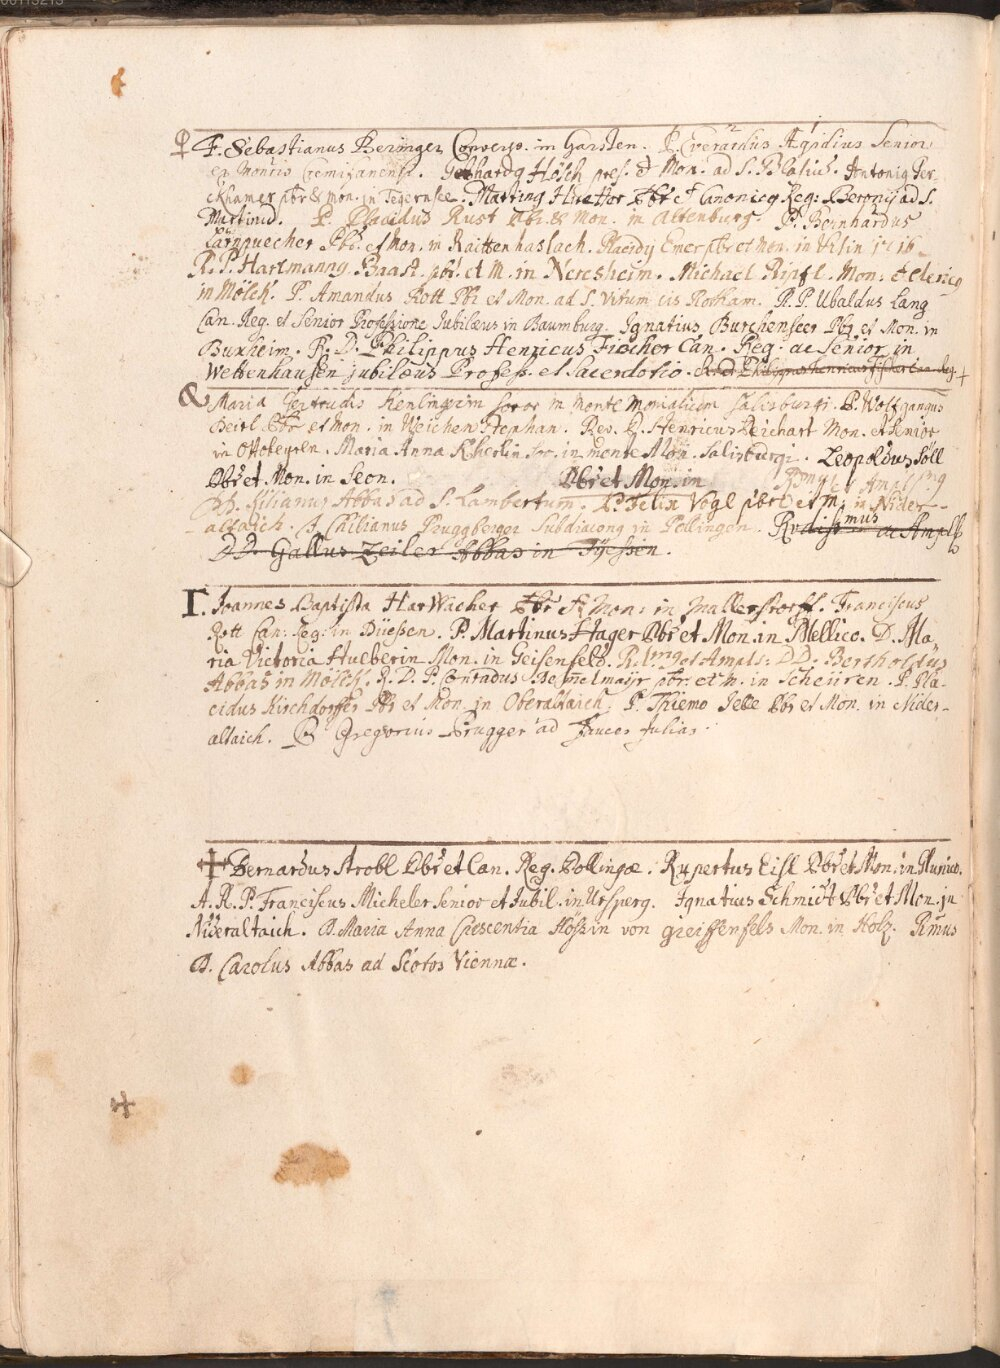 F. Sebastianus Beringer Convers. in Garsten. P. Everardus Ægidius Senior
ex Monrio Cremifanensi. Gebhardg Hösch prof. et Mon. ad S. Blasiū. Antonig Per-
ckhamer pbr & mon. in Tegernsee. Marting Hiretsor Pbr et Canonicg Reg: Beronsi ad S.
Martinū. P. Placidus Rust Pbr. & Mon. in Altenburg. P. Bernhardus
Pbr. et Mon. in Raittenhaslach. Placidy Emer pbr et Mon. in
R. P. Hartmanng Baast. pbr. et M. in Neresheim. Michael Ripfl. Mon. et Clericg
in Mölck. P. Amandus Rott Pbr et Mon. ad S. Vitum cis Rotham. R. P. Ubaldus Lang
Can. Reg. et Senior Professione Jubilæus in Baumburg. Ignatius Burchenseer Pbr et Mon. in
Buxheim. R. D. Philippus Henricus Fischer Can. Reg. ac Senior in
Wettenhausen jubileus Profess. et Sacerdotio. R. D. Philippus Henricus Fischer Can. Reg. +
& Maria Gertrudis Kenlingerin soror in monte Monialium Salisburgi. P. Wolfgangus
Beitl Pbr et Mon. in Weichenstephan. Rev. P. Henricus Reichart Mon. et Senior
in Ottobeyren. Maria Anna in monte Mon. Salisburgi. Leopoldus Söll
Pbr et Mon. in Seon. Pbr et Mon. in Rdmg et Amplsmg
DD. Kilianus Abbas ad S. Lambertum. P. Felix Vogl pbr et m. in Nider-
altaich. F. Chilianus Pruggberger Subdiacong in Pollingen. Rvdissmus ac Amplss
DD. Gallus Zeiler Abbas in Fyessen.
Γ. Joannes Baptista HarWacher Pbr et Mon: in Mallerstorff. Franciscus
Rott Can: Reg: in Düessen. P. Martinus Hager Pbr et Mon. in Mellico. D. Ma-
ria Victoria Hueberin Mon. in Geisenfeld. R. et Ampls: DD: Bertholdus
Abbas in Mölck. R. D. P. Conradus pbr. et M. in Scheüren. P. Pla-
cidus Kirchdorffer Pbr et Mon. in Oberaltaich. P. Thiemo Pbr et Mon. in Nider-
altaich. P. Gregorius Brugger ad fauces Julias.
✝ Bernardus Strobl Pbr et Can. Reg. Pollingæ. Rupertus Eisl Pbr et Mon. in
A. R. P. Franciscus Micheler Senior et Jubil. in Ursperg. Ignatius Schmidt Pbr et Mon. in
Nideraltaich. D. Maria Anna Crescentia Hössin von Greiffenfels Mon. in Holz. Rmus
D. Carolus Abbas ad Scotos Viennæ.